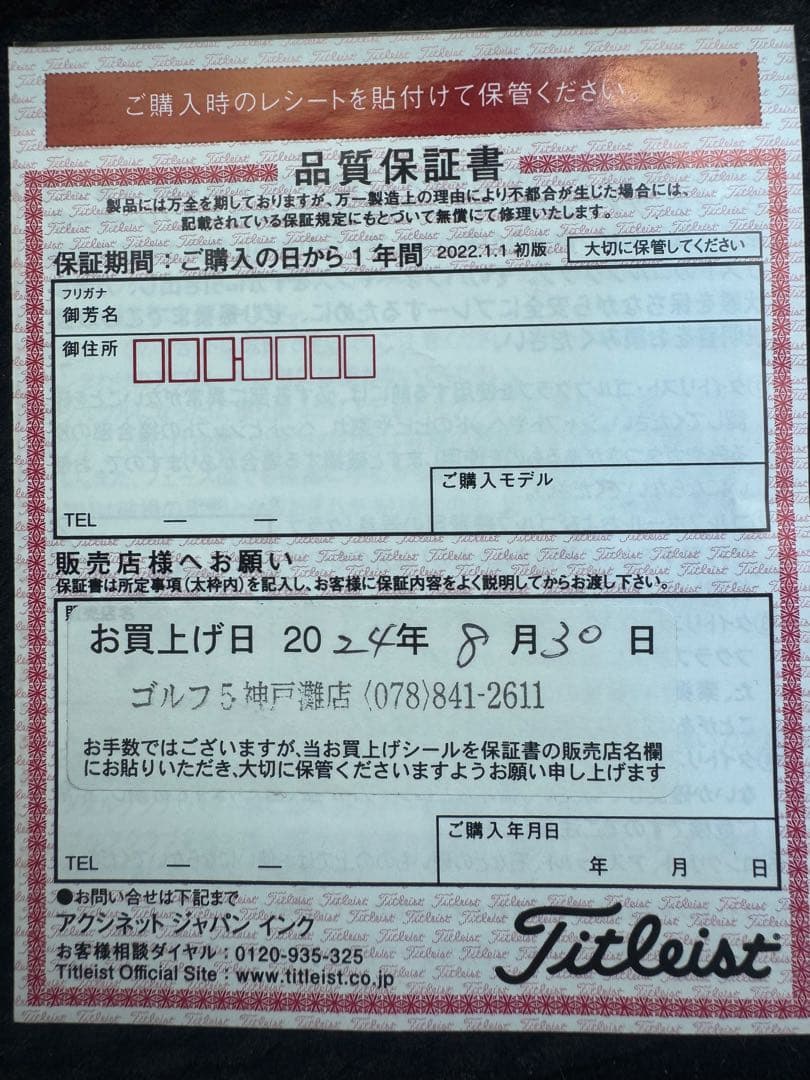 ご購入時のレシートを貼付けて保管ください。
品質保証書
製品には万全を期しておりますが、万一製造上の理由により不都合が生じた場合には、
記載されている保証規定にもとづいて無償にて修理いたします。
保証期間:ご購入の日から1年間 2022.1.1 初版 大切に保管してください
フリガナ
御芳名
御住所
ご購入モデル
TEL — —
販売店様へお願い
保証書は所定事項(太枠内)を記入し、お客様に保証内容をよく説明してからお渡し下さい。
お買上げ日 2024年 8月30日
ゴルフ5神戸灘店 (078)841-2611
お手数ではございますが、当お買上げシールを保証書の販売店名欄
にお貼りいただき、大切に保管くださいますようお願い申し上げます
ご購入年月日
TEL — — 年 月 日
●お問い合せは下記まで
アクシネット ジャパン インク
お客様相談ダイヤル:0120-935-325
Titleist Official Site:www.titleist.co.jp
Titleist